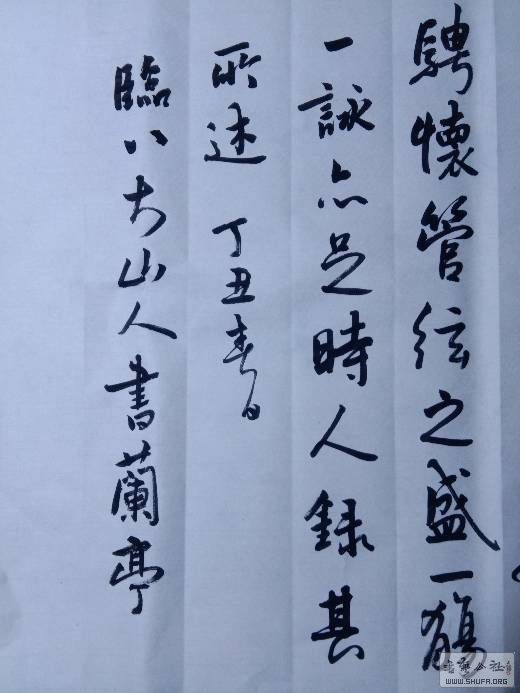 騁懷管弦之盛一觴
一詠亦足時人録其
所述 丁丑春日
臨八大山人書蘭亭
WWW.SHUFA.ORG